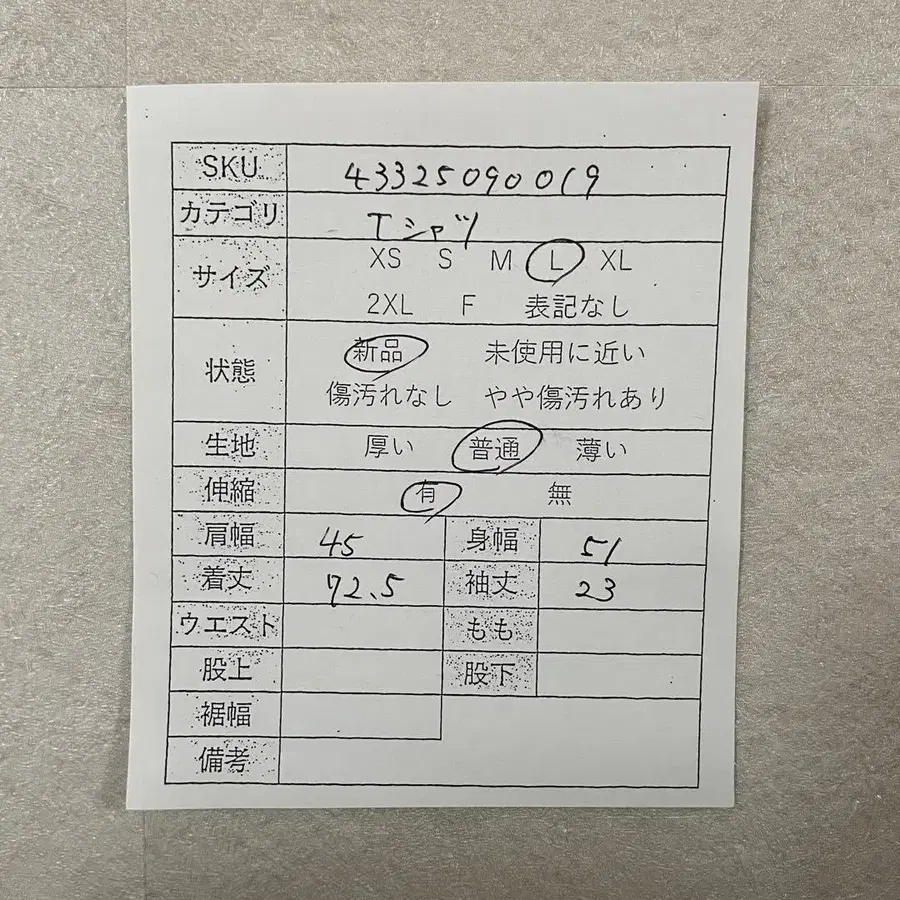 SKU 43325090019
カテゴリ Tシャツ
サイズ XS S M L XL
2XL F 表記なし
状態 新品 未使用に近い
傷汚れなし やや傷汚れあり
生地 厚い 普通 薄い
伸縮 有 無
肩幅 45 身幅 51
着丈 72.5 袖丈 23
ウエスト もも
股上 股下
裾幅
備考